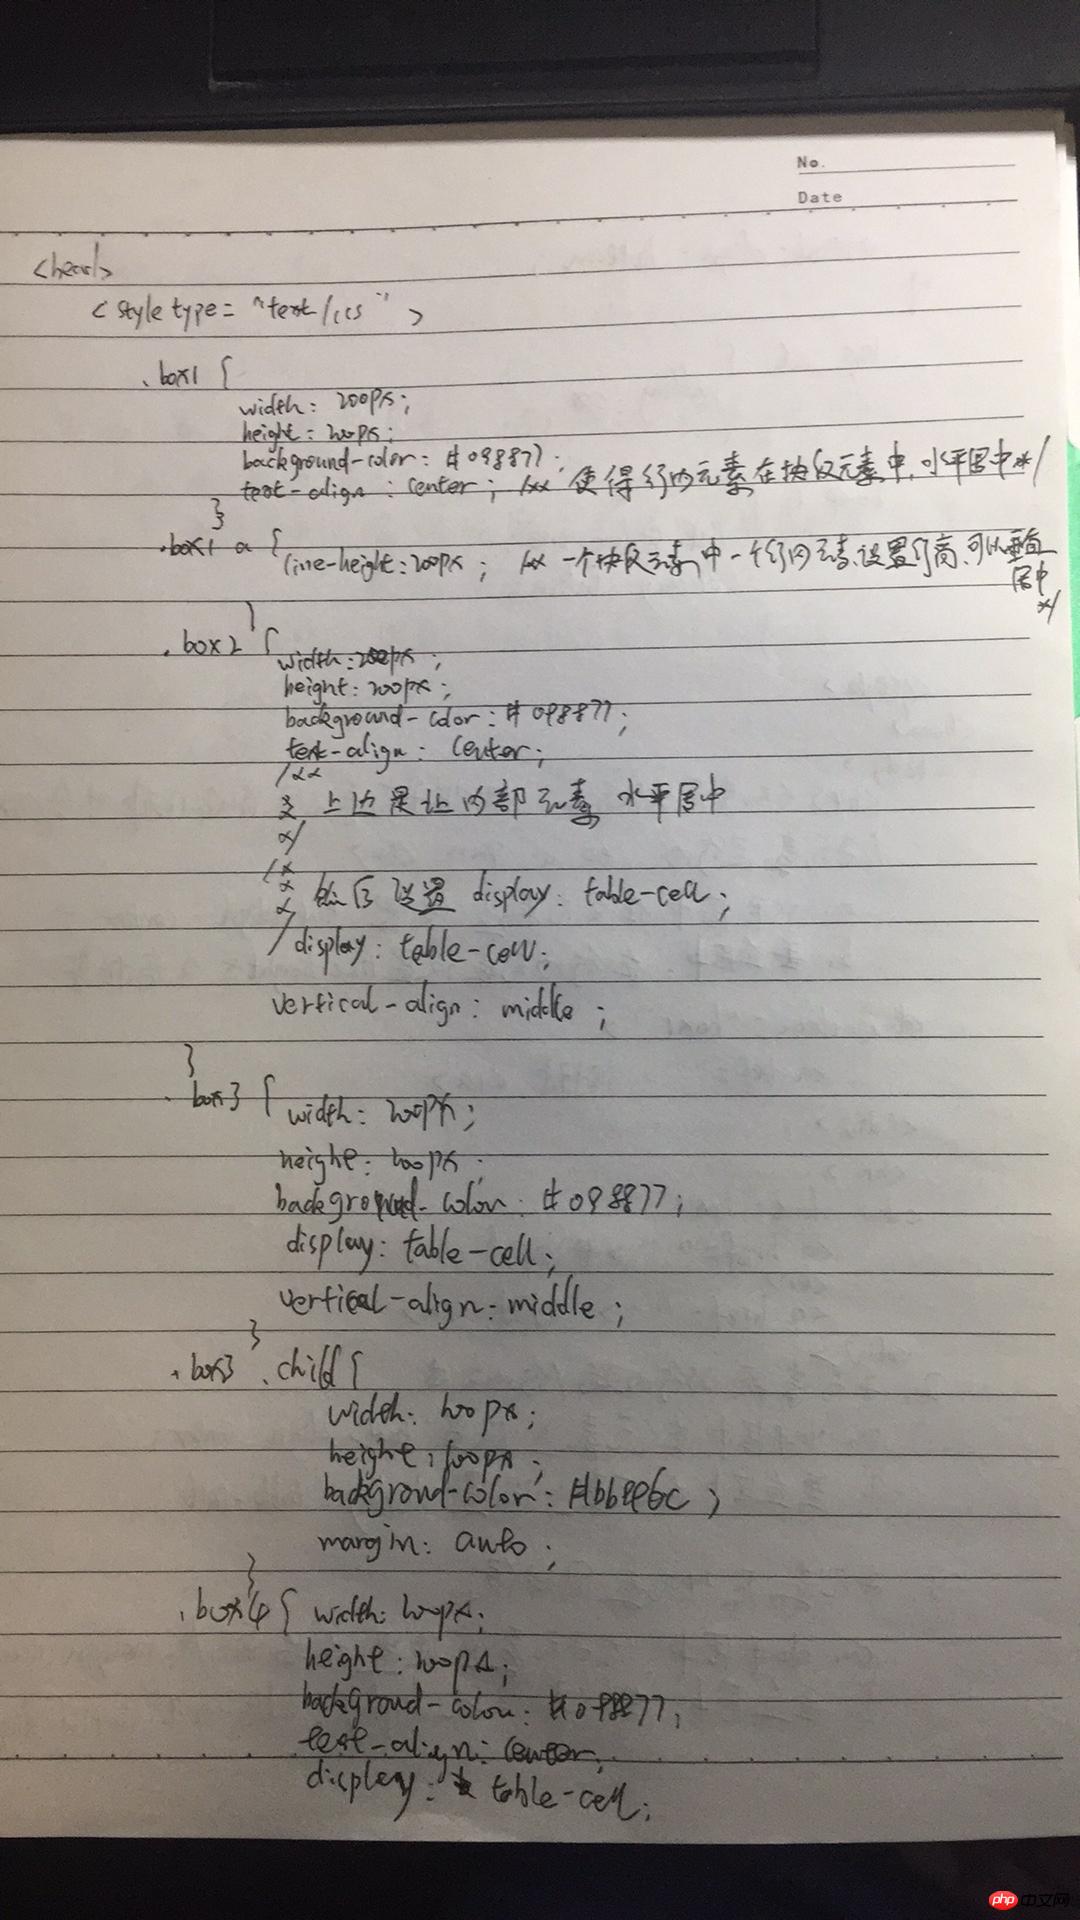 No.
Date
<head>
<style type="text/css">
.box1 {
width: 200px;
height: 200px;
background-color: #098877;
text-align: center; /** 使得行内元素在块级元素中,水平居中*/
}
.box1 a {
line-height:200px; /** 一个块级元素中一个行内元素,设置行高,可以垂直
居中
*/
}
.box2 {
width:200px;
height:200px;
background-color: #098877;
text-align: center;
/**
* 上边是让内部元素 水平居中
*/
/*
*
* 设置 display: table-cell;
*/
display: table-cell;
vertical-align: middle;
}
.box3 {
width: 200px;
height: 200px;
background-color: #098877;
display: table-cell;
vertical-align: middle;
}
.box3 .child {
width: 100px;
height: 100px;
background-color:
margin: auto;
}
.box4 { width: 200px;
height: 200px;
background-color: #098877;
text-align: center;
display: table-cell;
php 中文网